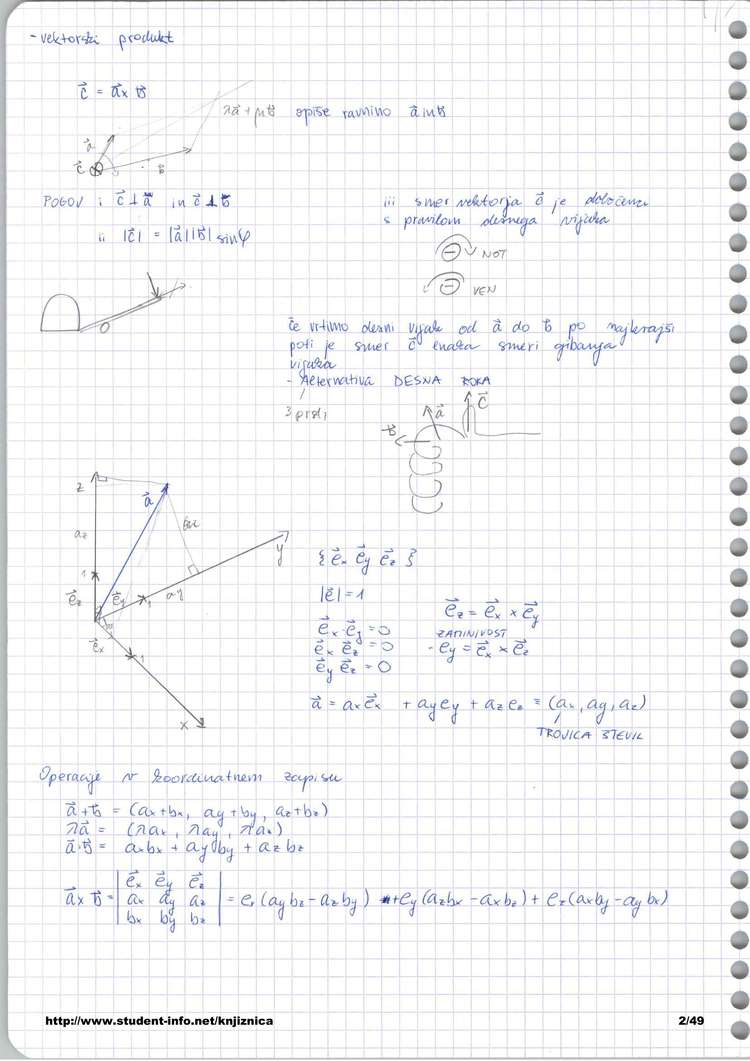 - vektorski produkt
c⃗ = a⃗ x b⃗
λa⃗ + μb⃗ opiše ravnino a⃗ in b⃗
a⃗
c⃗
b⃗
POGOJ i c⃗ ⊥ a⃗ in c⃗ ⊥ b⃗
ii |c⃗| = |a⃗||b⃗| sinφ
iii smer vektorja c⃗ je določena
s pravilom desnega vijaka
NOT
VEN
če vrtimo desni vijak od a⃗ do b⃗ po najkrajši
poti je smer c⃗ enaka smeri gibanja
vijaka
- Alternativa DESNA ROKA
3 prsti
a⃗
c⃗
b⃗
z
a⃗
az
y
1
ay
1
e⃗z
e⃗y
e⃗x
1
x
{ e⃗x e⃗y e⃗z }
|e⃗| = 1
e⃗x · e⃗y = 0
e⃗x e⃗z = 0
e⃗y e⃗z = 0
e⃗z = e⃗x x e⃗y
ZANIMIVOST
- ey = e⃗x x e⃗z
a⃗ = axe⃗x + ayey + azez = (ax, ay, az)
TROJICA ŠTEVIL
Operacije v koordinatnem zapisu
a⃗ + b⃗ = (ax+bx, ay+by, az+bz)
λa⃗ = (λax, λay, λaz)
a⃗·b⃗ = axbx + ayby + azbz
a⃗ x b⃗ = | e⃗x e⃗y e⃗z | = ex(aybz - azby) + ey(azbx - axbz) + ez(axby - aybx)
ax ay az
bx by bz
http://www.student-info.net/knjiznica
2/49